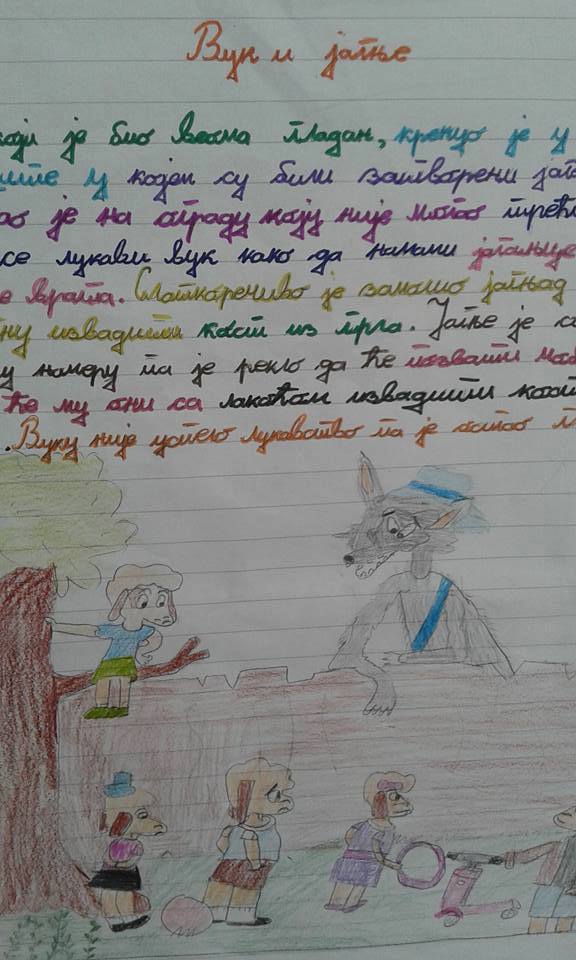 Вук и јагње
који је био веома гладан, кренуо је у
у којем су били затворени
је на ограду коју није могао прећи
се лукави вук како да намами јагањце
врата. Слаткоречиво је замолио јагњад
извадити кост из грла. Јагње је
намеру па је рекло да ће позвати
ће му они са лакоћом извадити кост
. Вуку није успело лукавство па је остао